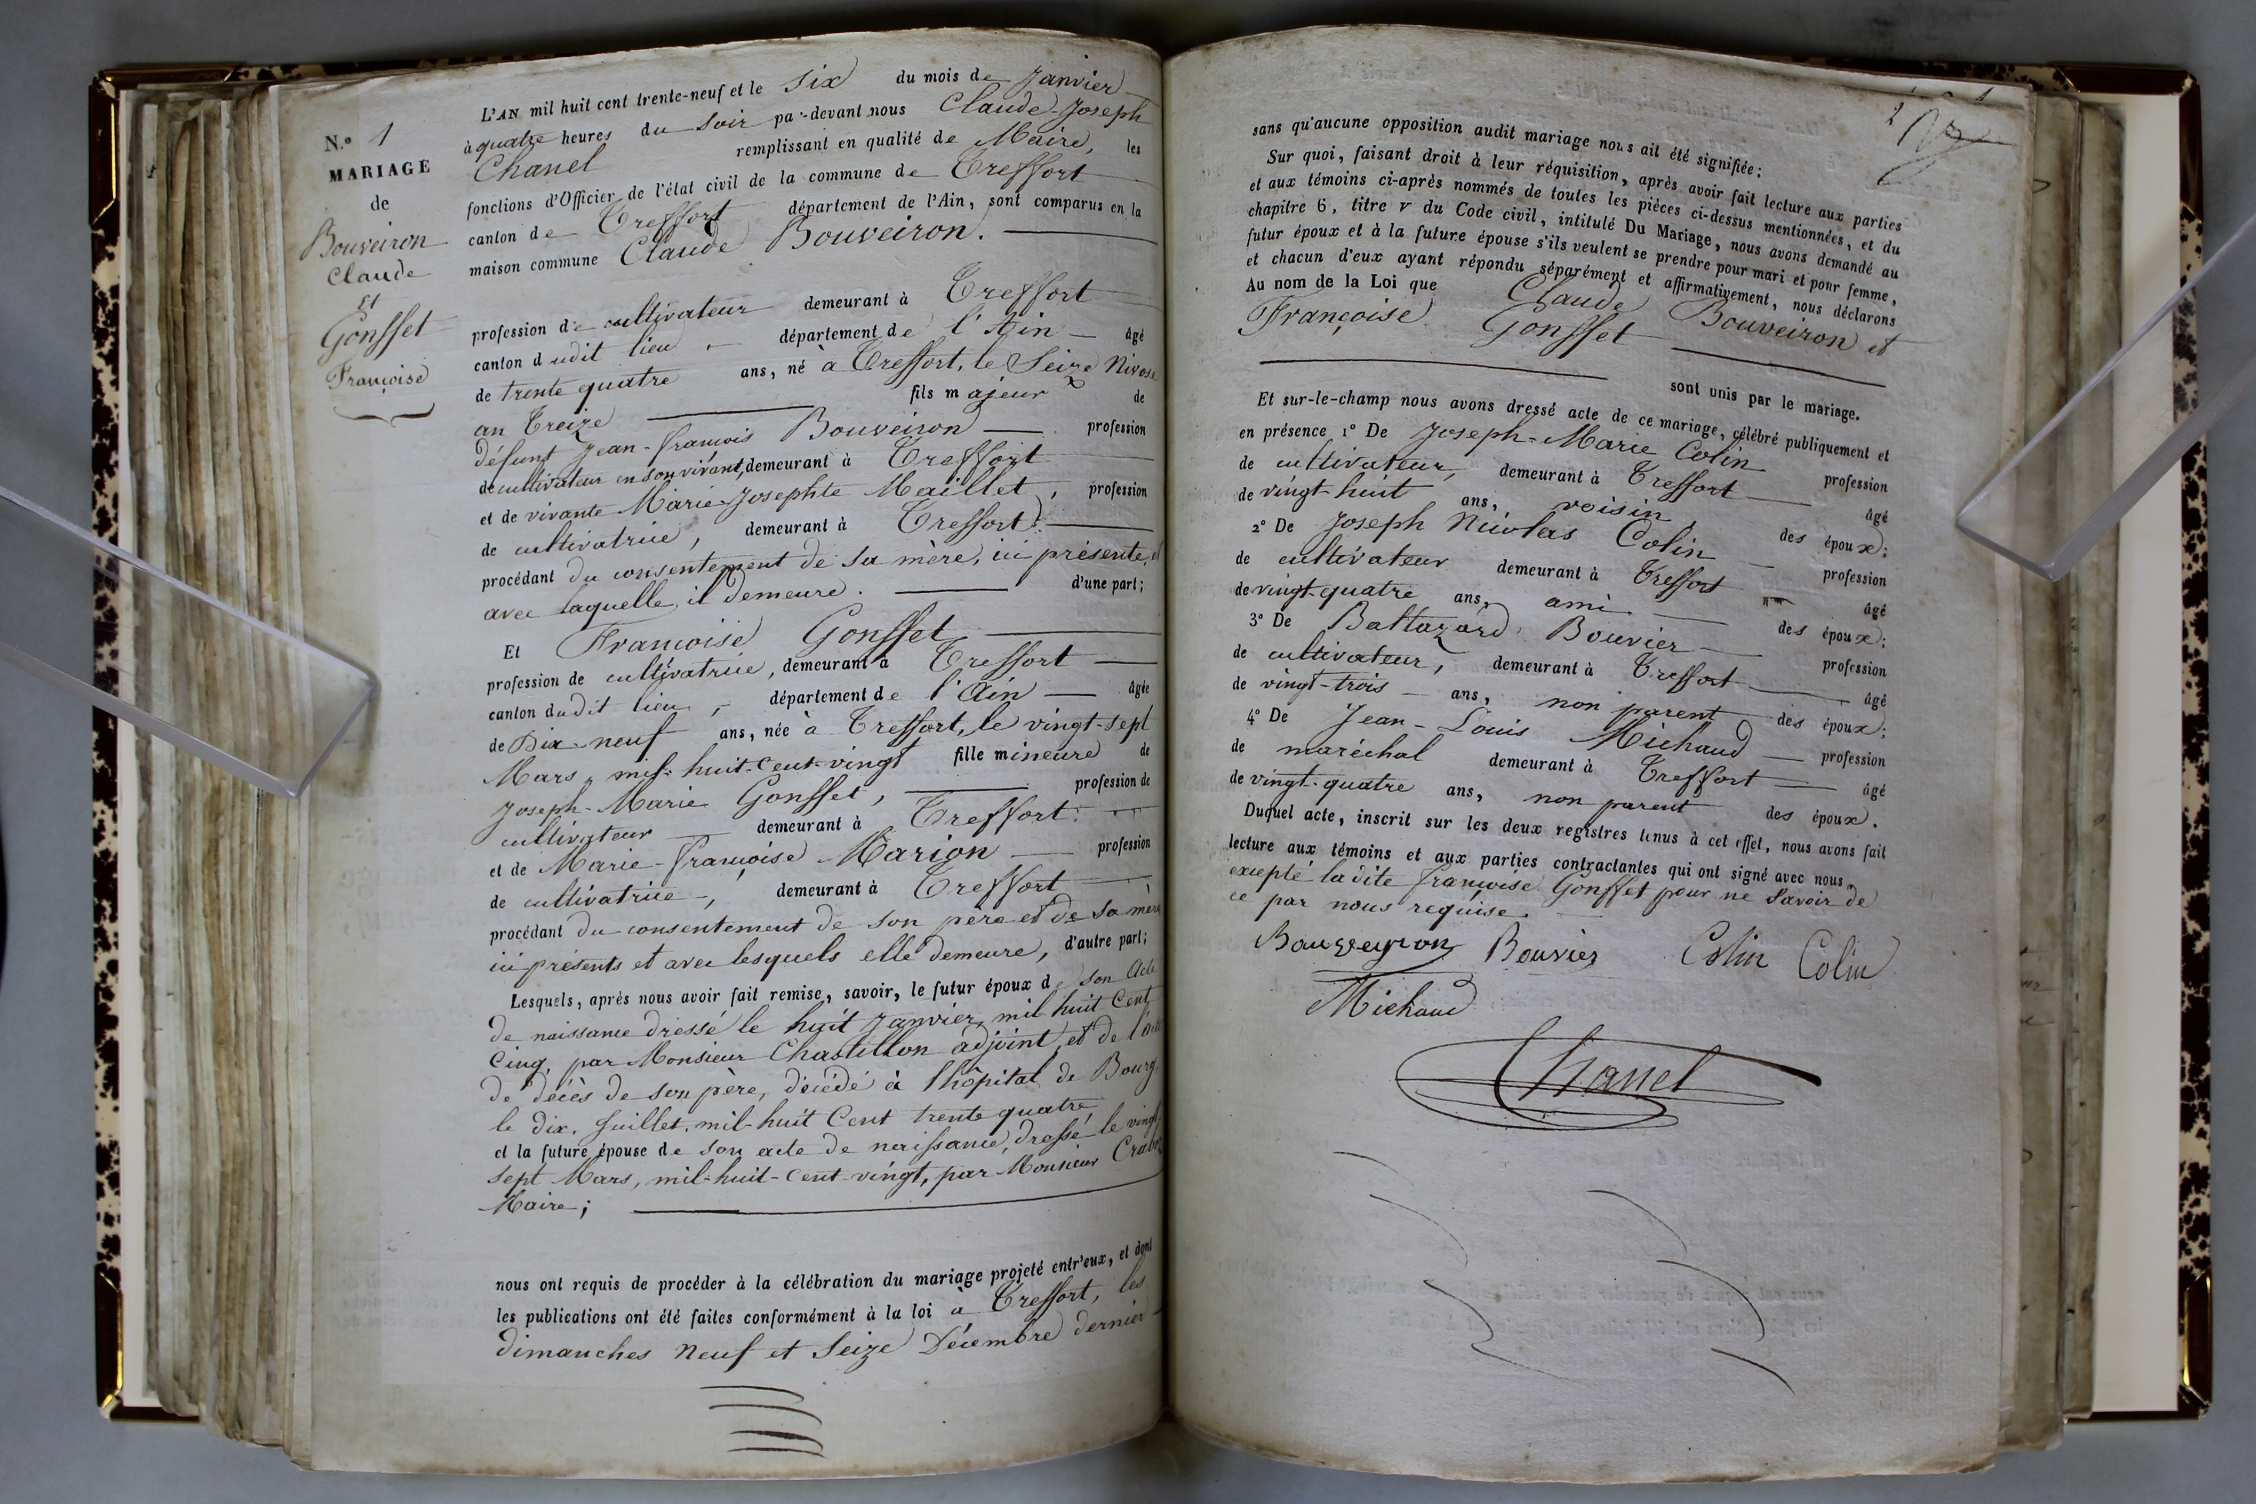 N.º 1
MARIAGE
de
Bouveiron
Claude
et
Gonsset
Françoise
L'AN mil huit cent trente-neuf et le Six du mois de Janvier
à quatre heures du Soir par-devant nous Claude-Joseph
Chanel remplissant en qualité de Maire, les
fonctions d'Officier de l'état civil de la commune de Treffort
canton de Treffort département de l'Ain, sont comparus en la
maison commune Claude Bouveiron.
profession de cultivateur demeurant à Treffort
canton dudit lieu département de l'Ain âgé
de trente quatre ans, né à Treffort, le Seize Nivose
an Treize fils majeur de
défunt Jean-françois Bouveiron profession
de cultivateur en son vivant, demeurant à Treffort
et de vivante Marie-Josephte Maillet, profession
de cultivatrice, demeurant à Treffort
procédant du consentement de sa mère, ici présente, et
avec laquelle il demeure. d'une part;
Et Françoise Gonsset
profession de cultivatrice, demeurant à Treffort
canton dudit lieu, département de l'Ain âgée
de Dix-neuf ans, née à Treffort, le vingt-sept
Mars, mil-huit-cent-vingt fille mineure de
Joseph-Marie Gonsset, profession de
cultivateur demeurant à Treffort
et de Marie-françoise Marion profession
de cultivatrice, demeurant à Treffort
procédant du consentement de son père et de sa mère
ici présents et avec lesquels elle demeure, d'autre part;
Lesquels, après nous avoir fait remise, savoir, le futur époux de son Acte
de naissance dressé le huit Janvier, mil huit Cent
Cinq, par Monsieur Chastillon adjoint, et de l'acte
de décès de son père, décédé à l'hôpital de Bourg
le dix Juillet, mil-huit Cent trente quatre,
et la future épouse de son acte de naissance, dressé le vingt
sept Mars, mil-huit-cent-vingt, par Monsieur
Maire;
nous ont requis de procéder à la célébration du mariage projeté entr'eux, et dont
les publications ont été faites conformément à la loi à Treffort, les
dimanches Neuf et Seize Décembre dernier
sans qu'aucune opposition audit mariage nous ait été signifiée;
Sur quoi, faisant droit à leur réquisition, après avoir fait lecture aux parties
et aux témoins ci-après nommés de toutes les pièces ci-dessus mentionnées, et du
chapitre 6, titre V du Code civil, intitulé Du Mariage, nous avons demandé au
futur époux et à la future épouse s'ils veulent se prendre pour mari et pour femme,
et chacun d'eux ayant répondu séparément et affirmativement, nous déclarons
Au nom de la Loi que Claude Bouveiron et
Françoise Gonsset
sont unis par le mariage.
Et sur-le-champ nous avons dressé acte de ce mariage, célébré publiquement et
en présence 1º De Joseph-Marie Colin profession
de cultivateur, demeurant à Treffort âgé
de vingt-huit ans, voisin des époux;
2º De Joseph Nicolas Colin profession
de cultivateur demeurant à Treffort âgé
de vingt-quatre ans, ami des époux;
3º De Baltazard Bouvier profession
de cultivateur, demeurant à Treffort âgé
de vingt-trois ans, non parent des époux;
4º De Jean-Louis Michaud profession
de maréchal demeurant à Treffort âgé
de vingt-quatre ans, non parent des époux.
Duquel acte, inscrit sur les deux registres tenus à cet effet, nous avons fait
lecture aux témoins et aux parties contractantes qui ont signé avec nous,
excepté ladite françoise Gonsset pour ne savoir de
ce par nous requise.
Bouveyron Bouvier Colin Colin
Michaud
Chanel